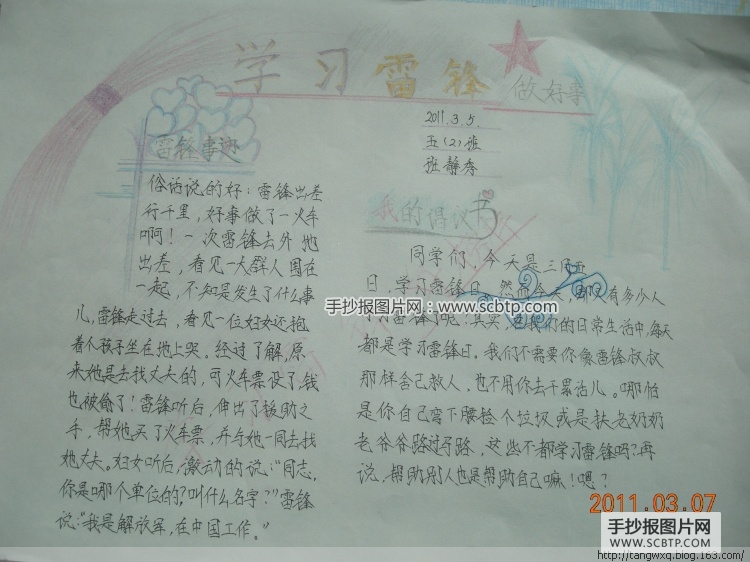 学习雷锋
做好事
2011.3.5.
五(2)班
班静秀
雷锋事迹
俗话说的好：雷锋出差
行千里，好事做了一火车
啊！一次雷锋去外地
出差，看见一大群人围在
一起，不知是发生了什么事
儿，雷锋走过去，看见一位妇女还抱
着个孩子坐在地上哭。经过了解，原
来她是去找丈夫的，可火车票没了，钱
也被偷了！雷锋听后，伸出了援助之
手，帮她买了火车票，并与她一同去找
她丈夫。妇女听后，激动的说：“同志，
你是哪个单位的？叫什么名字？”雷锋
说：“我是解放军，在中国工作。”
我的倡议书
同学们，今天是三月五
日，学习雷锋日，然而今天，却又有多少人
学习雷锋了呢？其实，在我们的日常生活中，每天
都是学习雷锋日，我们不需要你像雷锋叔叔
那样舍己救人，也不用你去干累活儿。哪怕
是你自己弯下腰捡个垃圾，或是扶老奶奶
老爷爷路过马路，这些不都学习雷锋吗？再
说，帮助别人也是帮助自己嘛！嗯？
手抄报图片网：www.scbtp.com
2011.03.07
手抄报图片网
SCBTP.COM
http://tangwxq.blog.163.com/